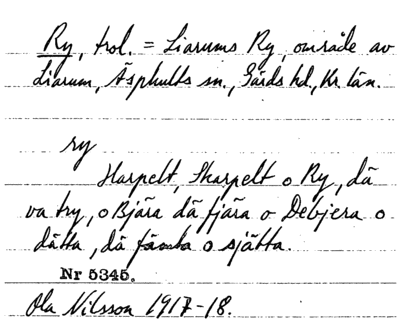 Ry, trol. = Liarums Ry, område av
Liarum, Äsphults sn., Gärds hd., Kr. län.
ry
Harpelt, Skarpelt o Ry, då
va try, o Bjära då fjära o Debjera o
dåtta, då fämta o sjätta.
Nr 5345.
Ola Nilsson 1917-18.